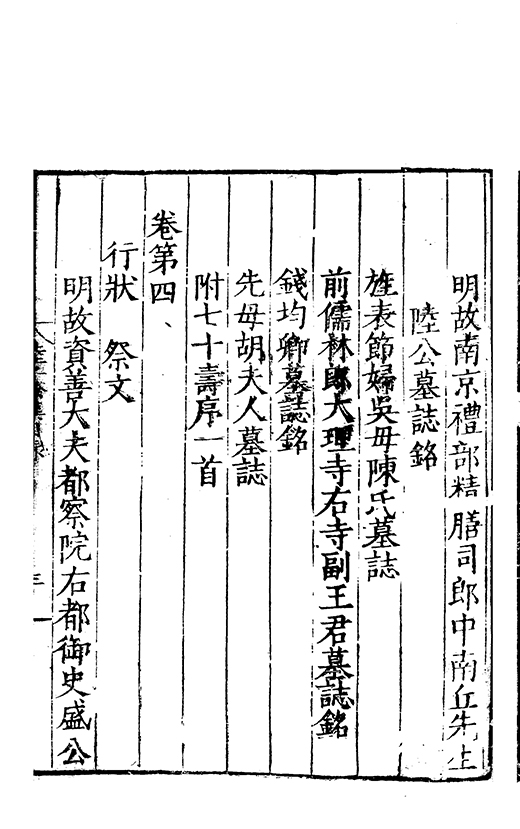 明故南京禮部精膳司郎中南丘先生
陸公墓誌銘
旌表節婦吳母陳氏墓誌
前儒林郎大理寺右寺副王君墓誌銘
錢均卿墓誌銘
先母胡夫人墓誌
附七十壽序一首
卷第四、
行狀　祭文
明故資善大夫都察院右都御史盛公